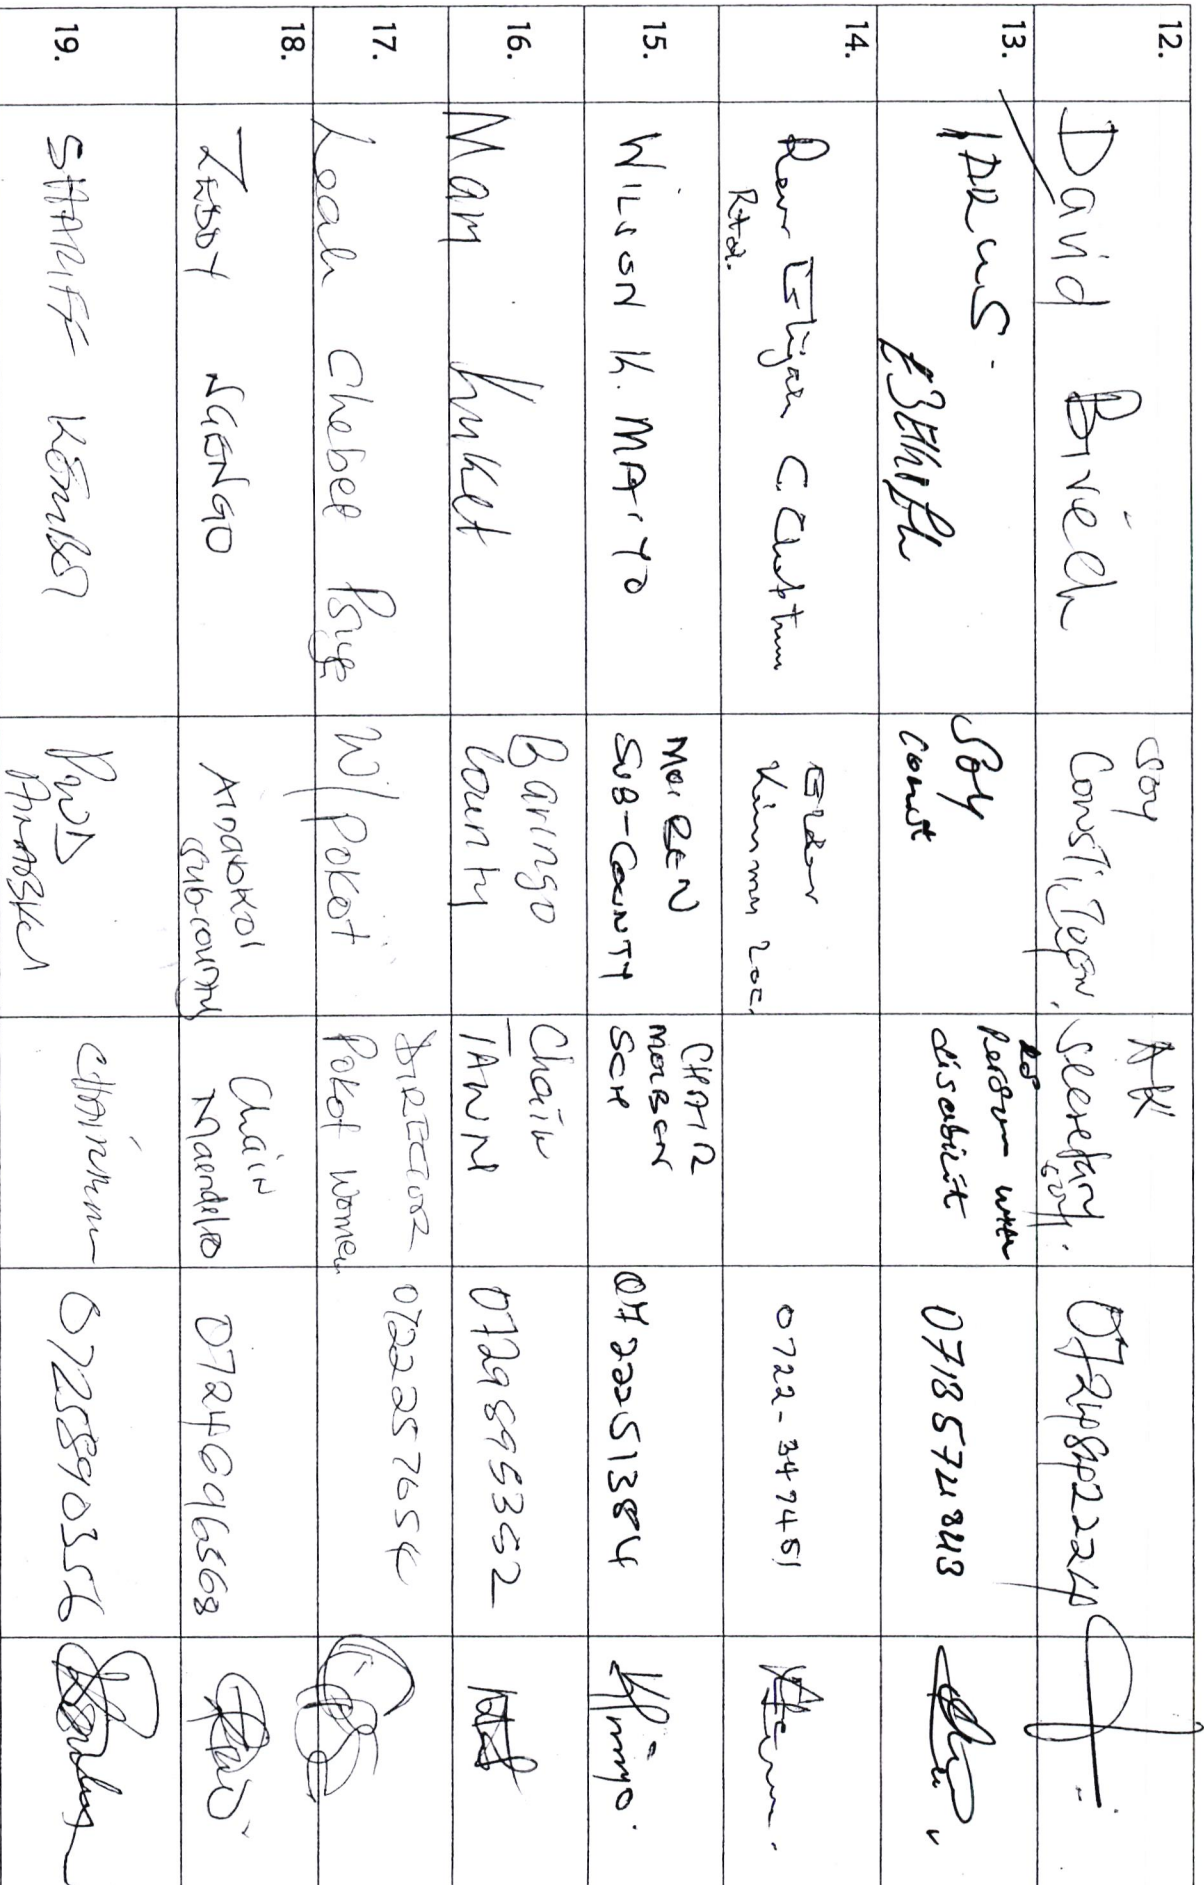 12. David Birech soy Constituen, AK secretary soy. 0724842224
13. IDRUS. Soy const as person with disability 0718572843
14. Rev Elijah C Chebtum Rtd. Elder Kimumu Loc. 0722-347451
15. WILSON K. MAIYO MOIBEN SUB-COUNTY CHAIR MOIBEN SCH 0722251384
16. Mary Kuket Baringo County Chair TAWN 0729895352
17. Leah Chebet Psiya W/Pokot DIRECTOR Pokot Women 072225765
18. ZEDDY NGENGO AINABKOI Subcounty Chair Maendeleo 0724696568
19. SHARIFF KOMBO PWD AINABKOI CHAIRMAN 0725890356